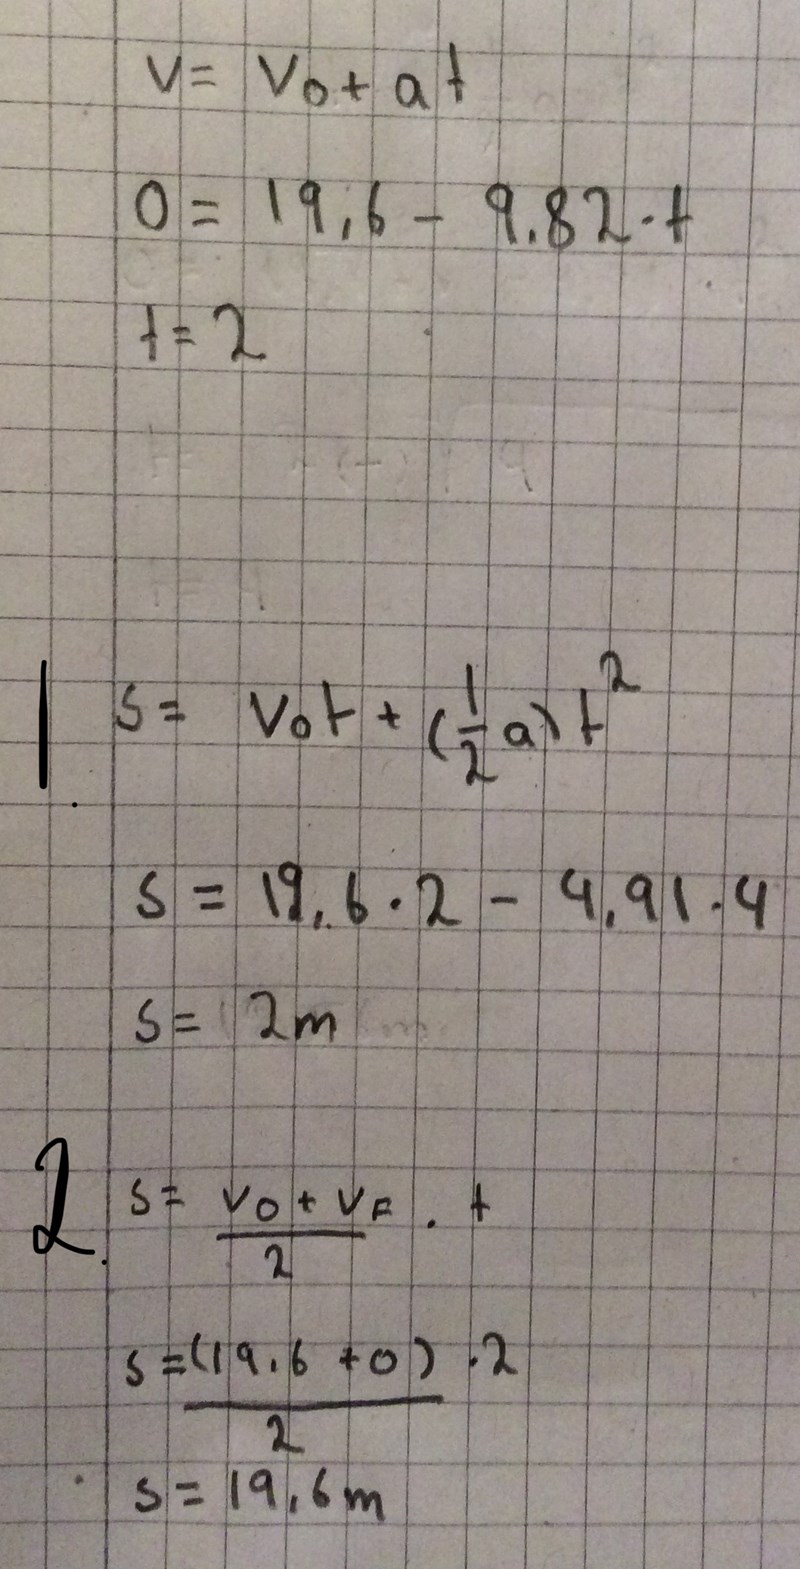 V = V₀ + a t
0 = 19,6 - 9.82 · t
t = 2
1. s = V₀t + (1/2 a) t²
s = 19,6 · 2 - 4,91 · 4
s = 2m
2. s = (V₀ + V_F)/2 · t
s = (19,6 + 0)/2 · 2
s = 19,6 m